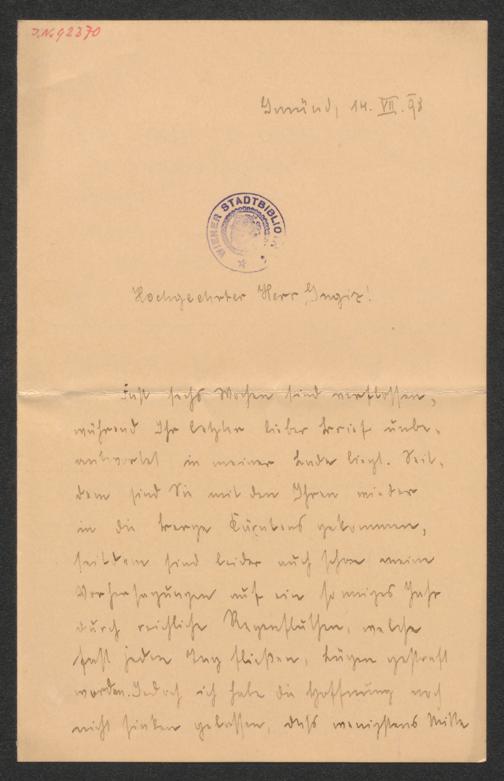 J.N. 92370
Gmünd, 14. VII. 98
WIENER STADTBIBLIO
Hochgeehrter Herr
Fast sechs Wochen sind verflossen,
während Ihr letzter lieber Brief unbe-
antwortet in meiner Lade liegt. Seit-
dem sind Sie mit den Ihren wieder
in die Berge Kärntens gekommen,
seitdem sind leider auch schon meine
Vorhersagungen auf ein sonniges Jahr
durch reichliche Regenfluthen, welche
fast jeden Tag fließen, Lügen gestraft
worden. Jedoch ich habe die Hoffnung noch
nicht sinken gelassen, dass wenigstens Mitte